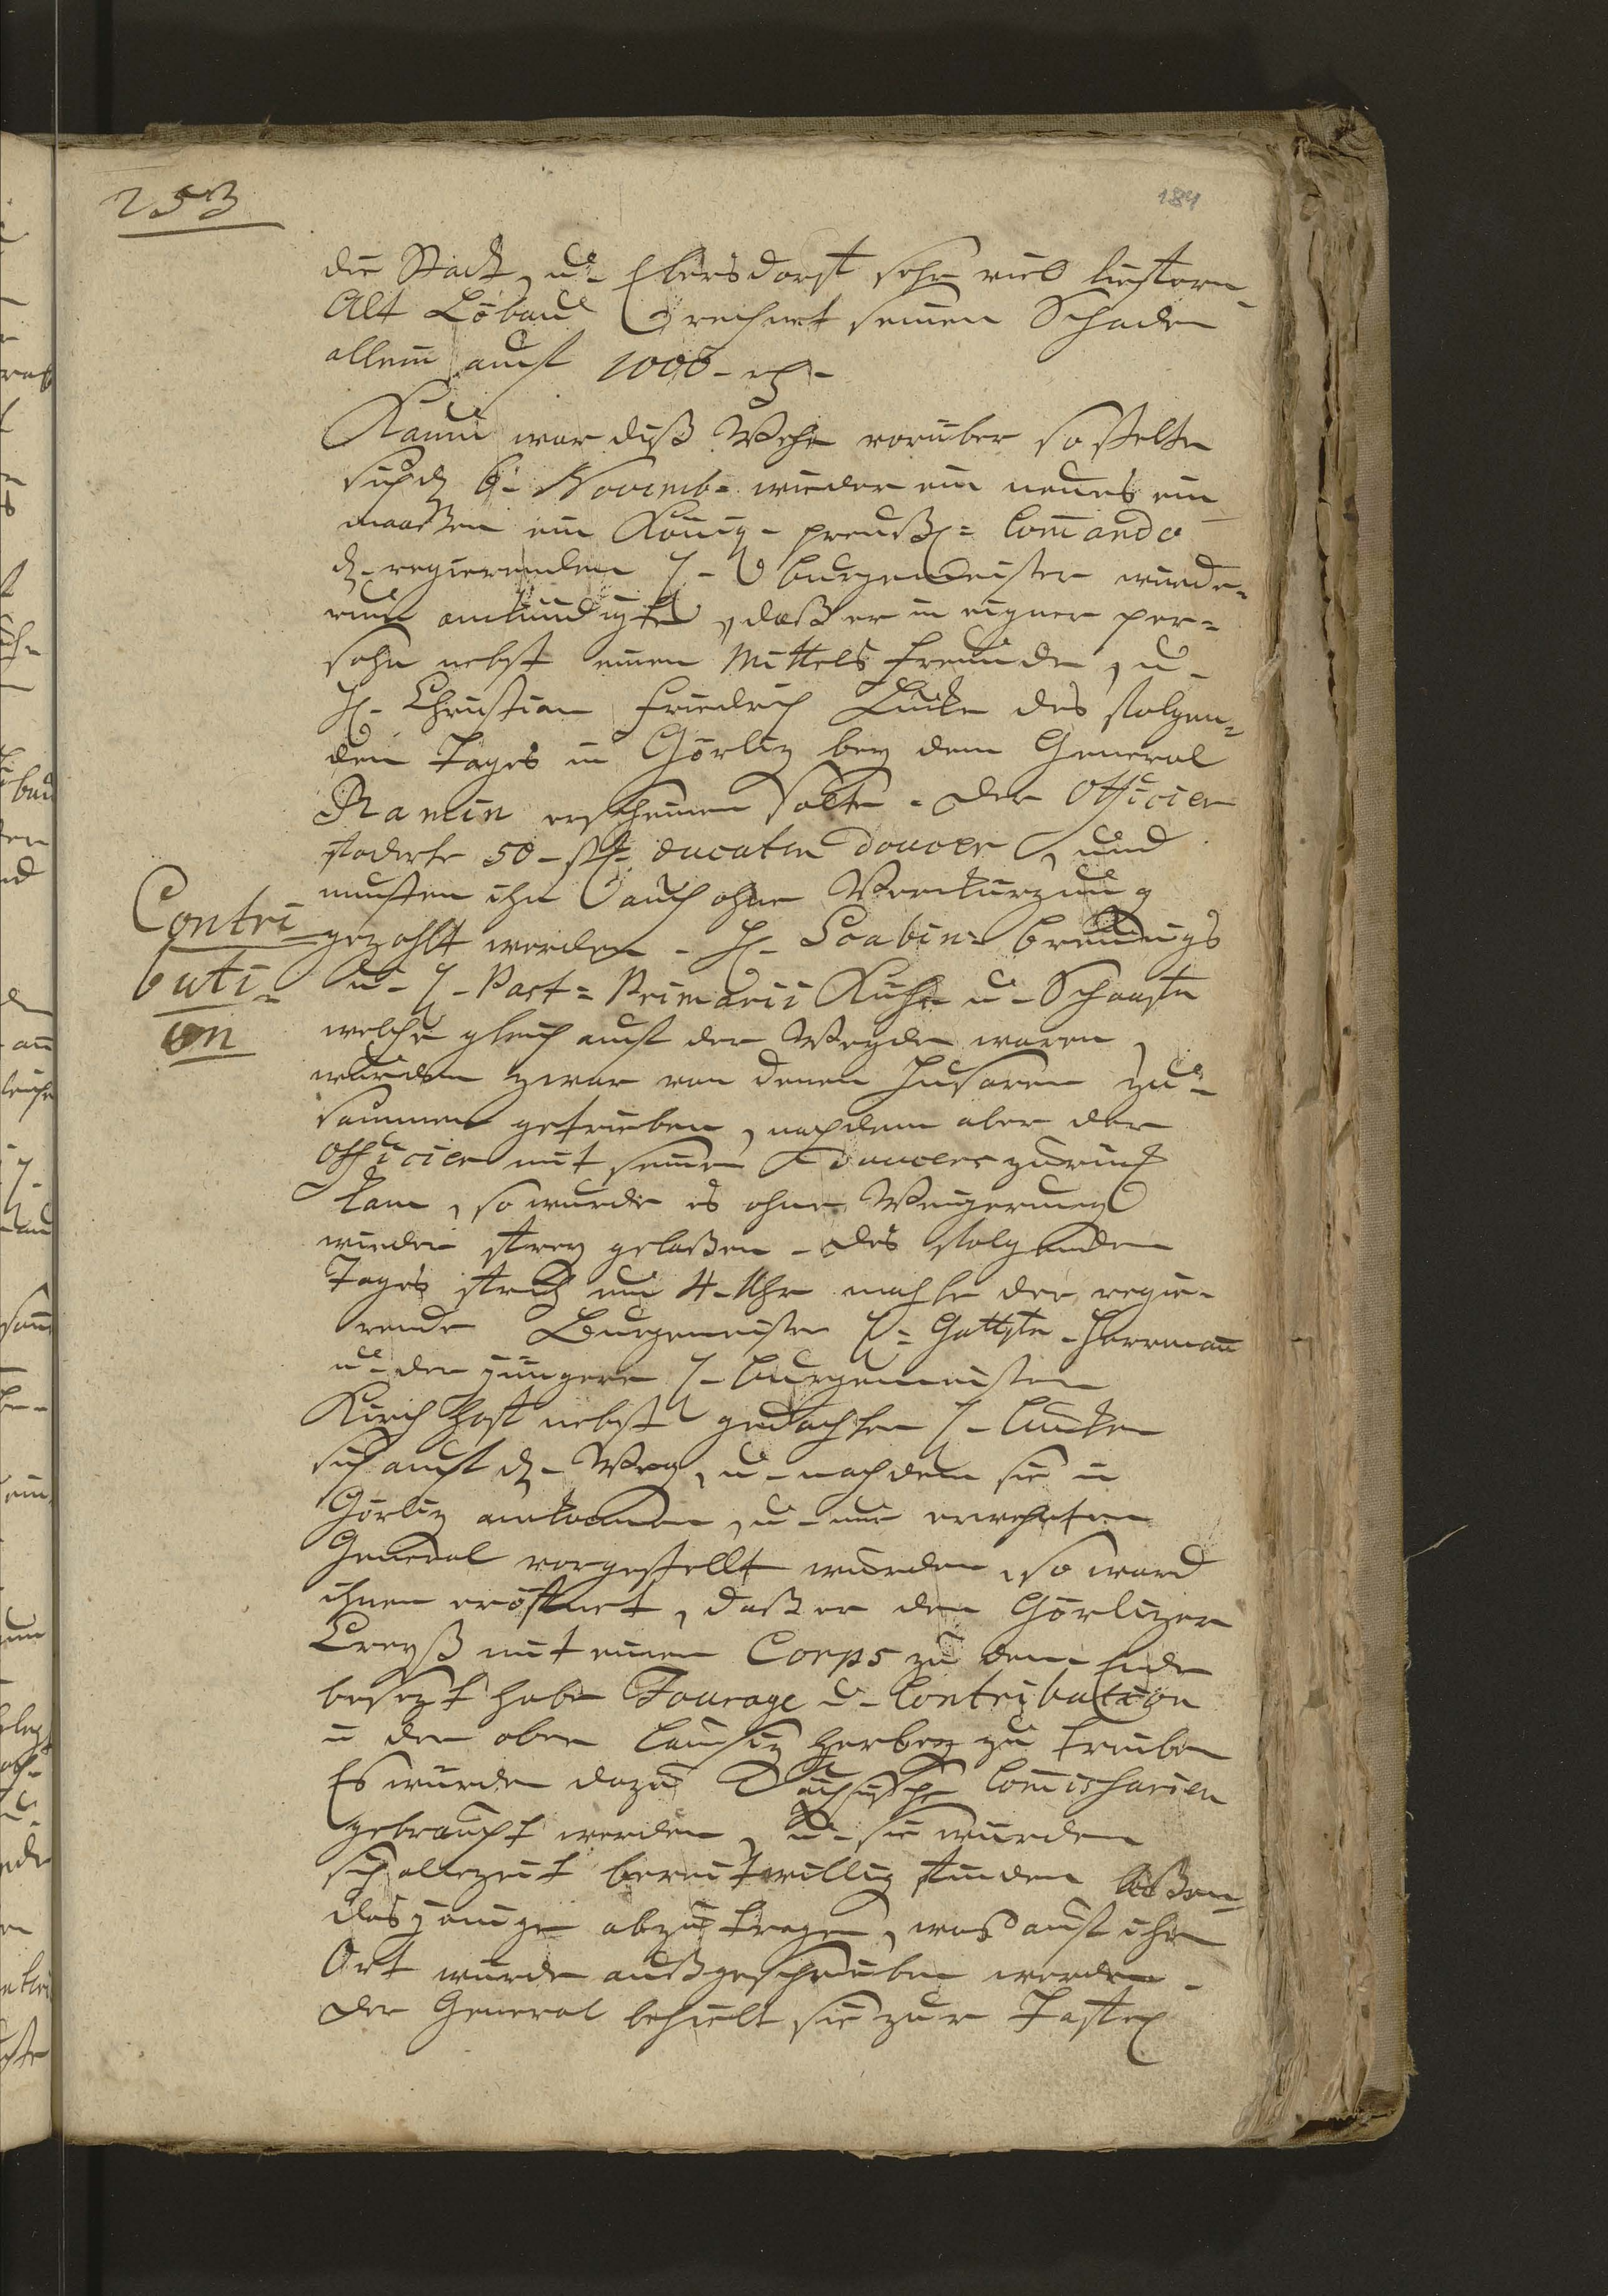 253
184
die Stadt, u- Ebersdorff sehr viel liefern-
Alt Löbau rechnet seinen Schaden
allein auf 1000-rh-
Kaum war diß Wehe vorüber so stelte
sich d. 6- Novemb= wieder ein neues ein
maaßen ein König- preuß= Commando
d- regierenden H- Burgemeister wiede-
rum ankündigte, daß er in eigner per-
sohn nebst einen Mittels Freunde, u-
H- Christian Friedrich Lücke des folgen-
den Tages in Görliz bey dem General
Ramin erscheinen solte - der Officier
foderte 50-st- ducaten douceur, und
musten ihn auch ohne Verkürzung
Contri
gezahlt werden - H- Scabin= Brünings
buti-
u- H- Past= Primarii Kühe u- Schaafe
on
welche gleich auf der Weyde waren,
wurden zwar von denen Husaren zu-
sammen getrieben, nachdem aber der
Officier mit seinen douceur zurück
kam, so wurde es ohne Weigerung
wieder frey gelaßen - des folgenden
Tages früh um 4-Uhr machte der regie-
rende Burgemeister H= Herrmann
u- der jüngere H- Burgemeister
Kirchhoff nebst gedachten H- Lücken
sich auf d- Weg, u- nachdem sie in
Görliz ankamen, u- nur erwehnten
General vorgestellt wurden, so ward
ihnen eröffnet, daß er den Görlizer
Creyß mit einen Corps zu dem Ende
besezt habe Fourage u- Contribution
in der ober Lausiz herbey zu treiben
Es würden dazu Sächsische Commissarien
gebraucht werden, u- sie würden
sich allezeit bereitwillig finden laßen-
dasjenige abzutragen, was auf ihr
Ort würde außgeschrieben werden-
der General behielt sie zur Taffel